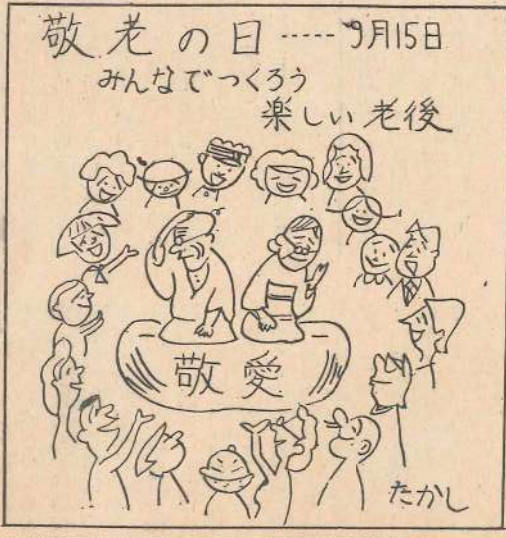 敬老の日-----9月15日
みんなでつくろう
楽しい老後
敬愛
たかし